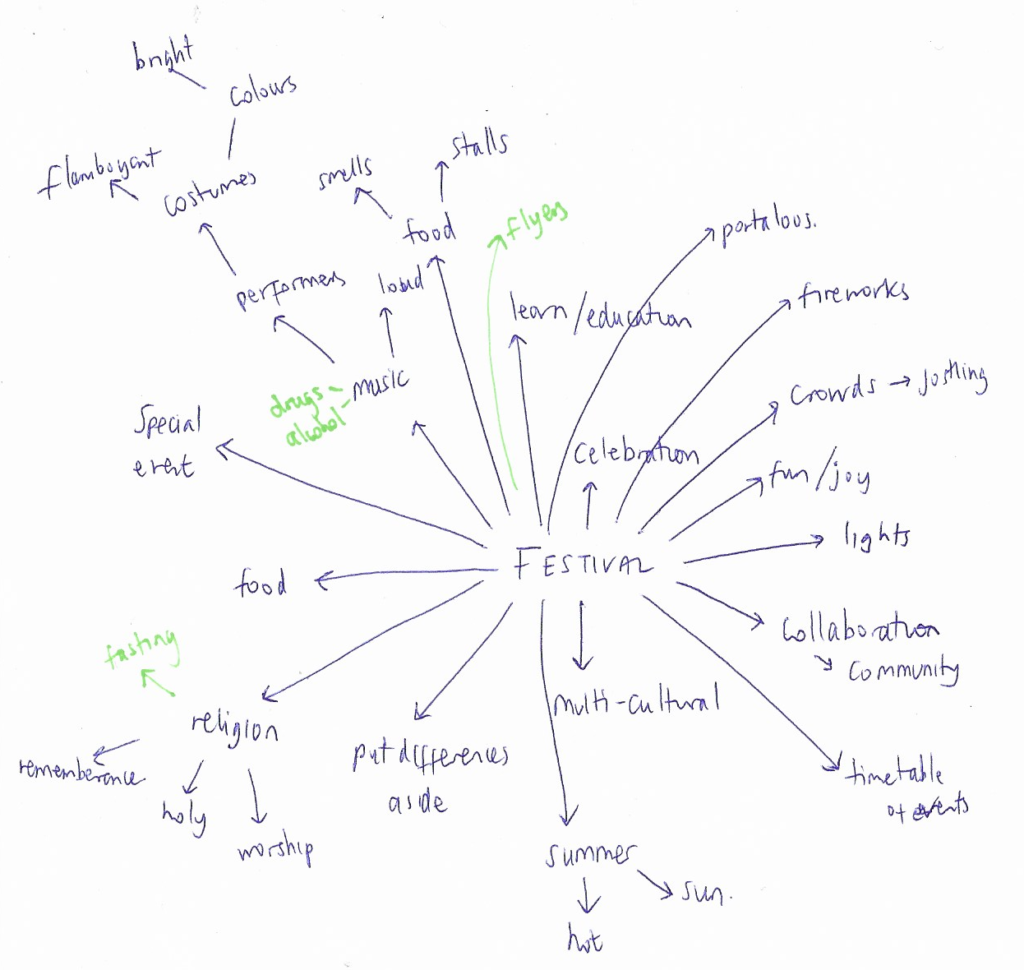 bright
colours
stalls
flamboyant
smells
costumes
flyers
food
portalous.
performers
loud
fireworks
learn/education
music
crowds → jostling
drugs
alcohol
Special
event
celebration
fun/joy
lights
FESTIVAL
food
collaboration
community
fasting
multi-cultural
religion
put differences
aside
rememberance
timetable
of events
holy
worship
summer
sun.
hot